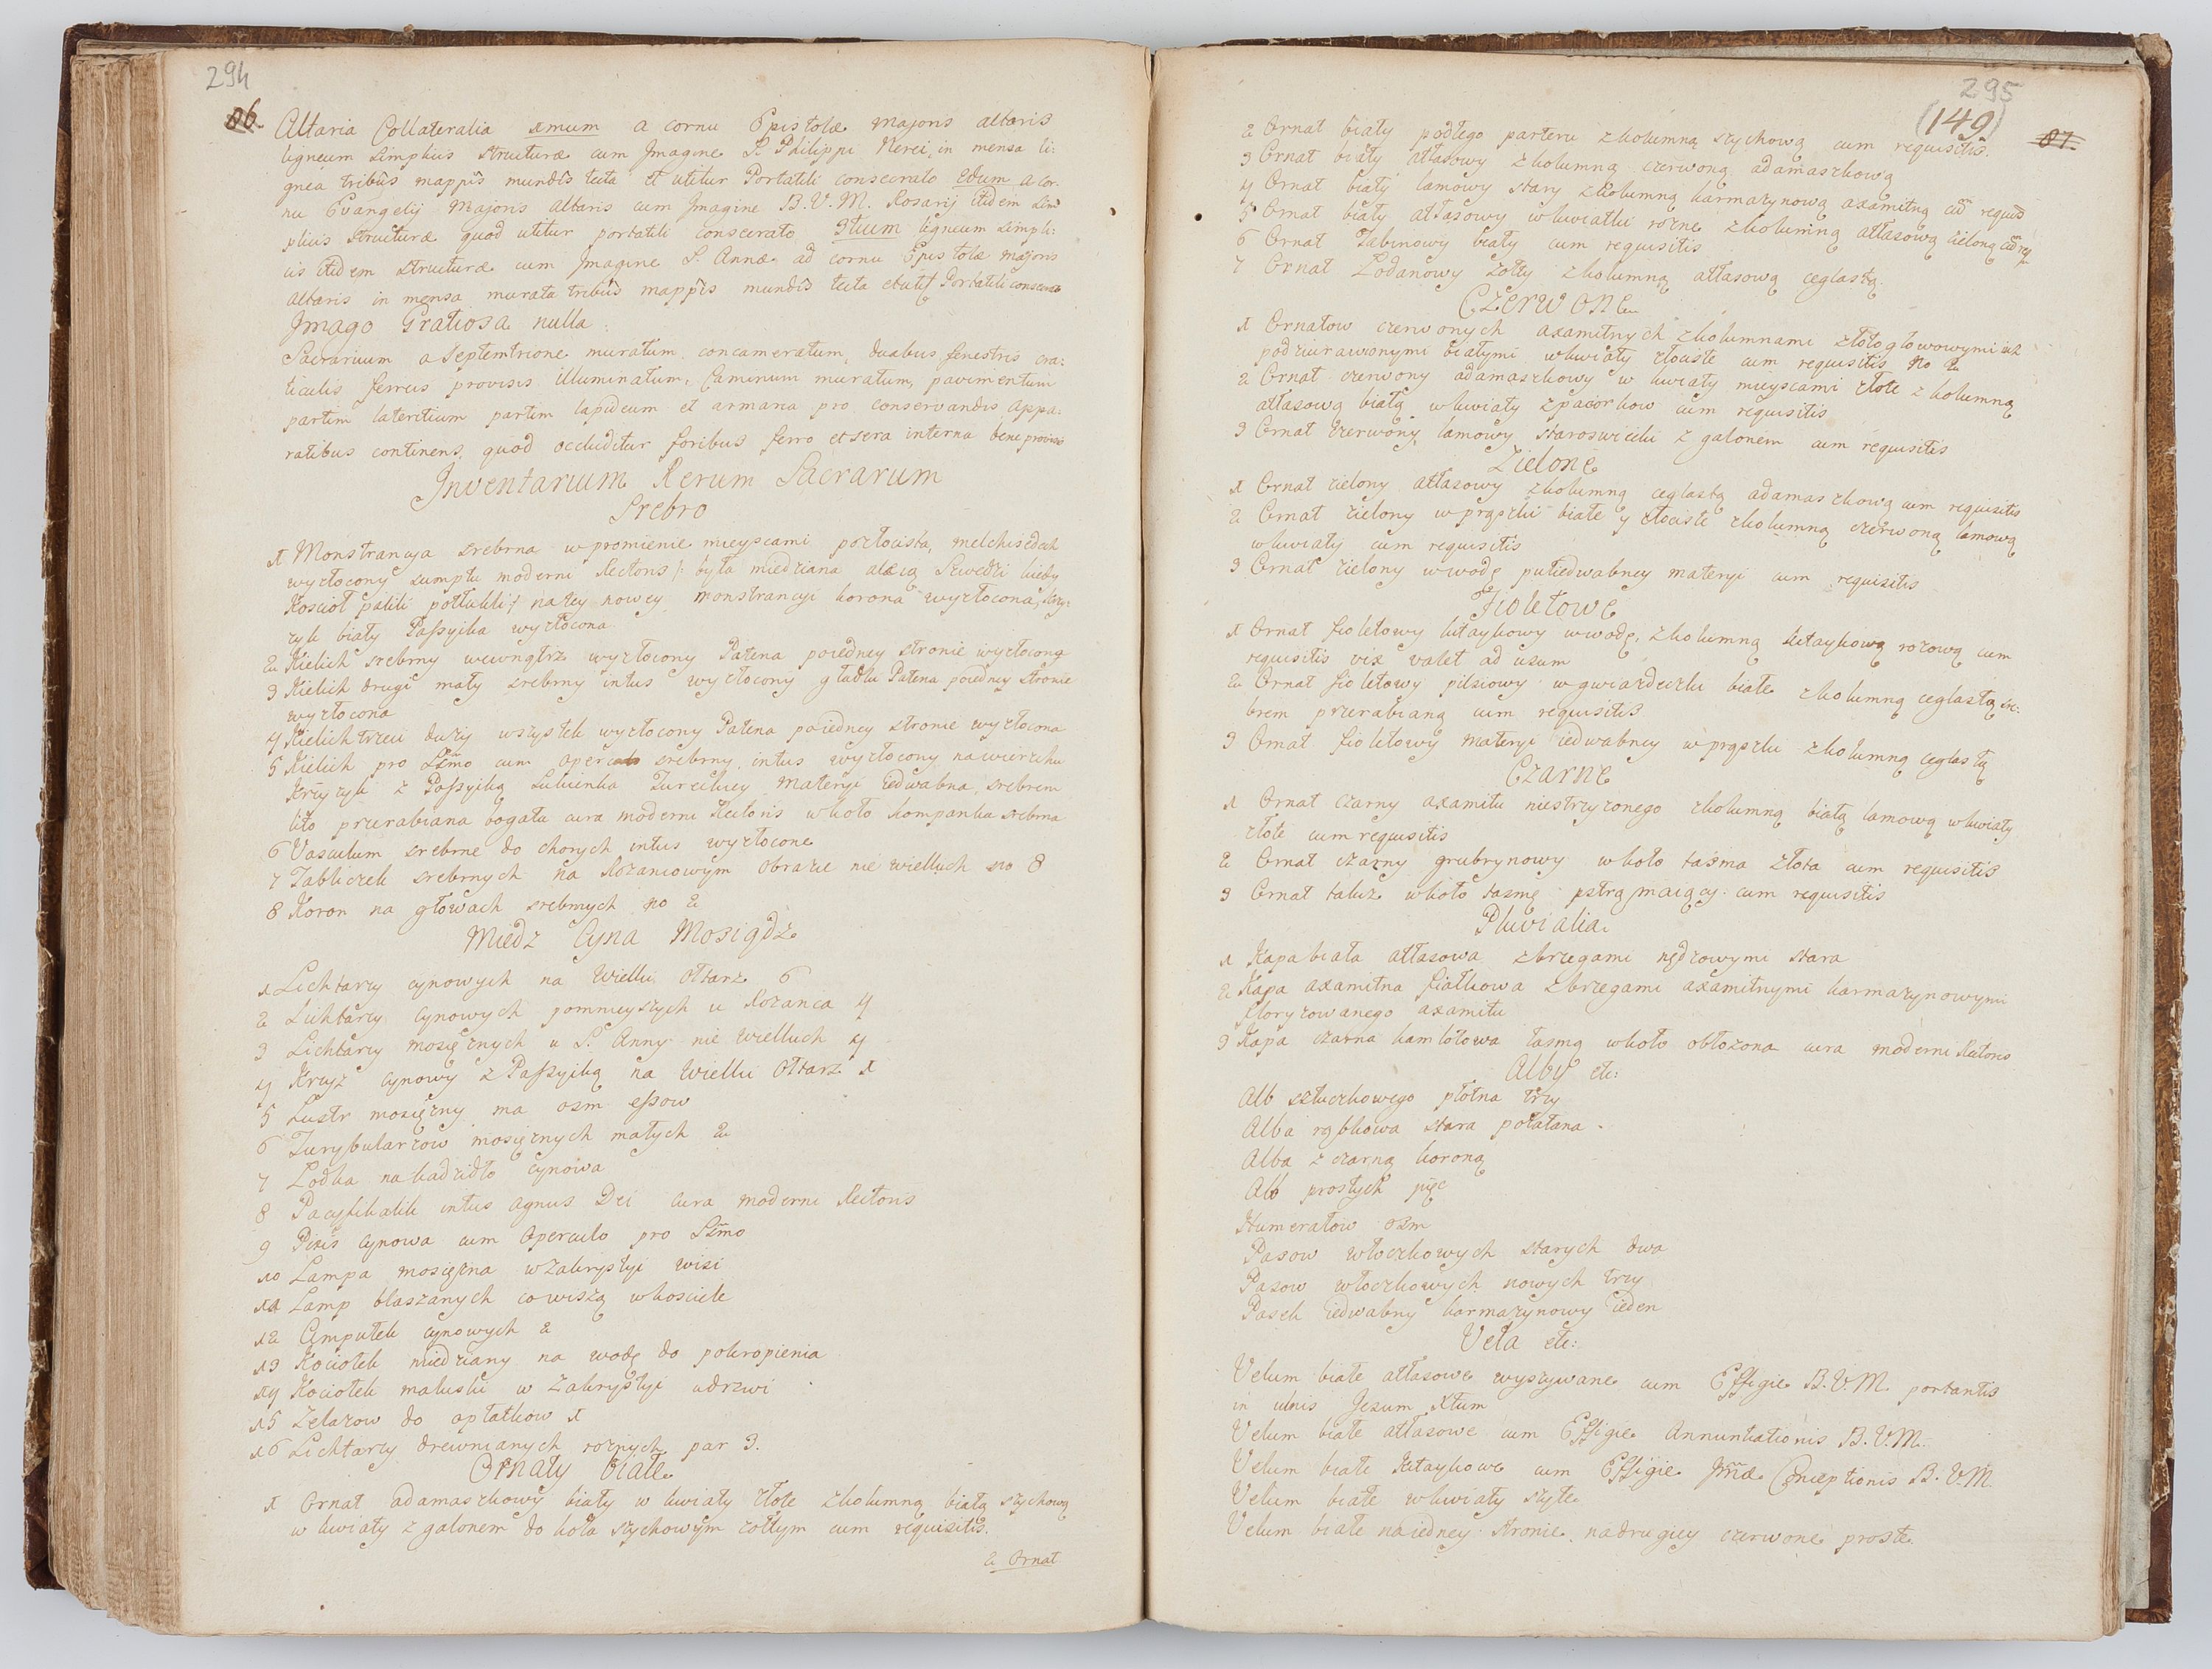 294
86.
Altaria Collateralia 1mum a cornu Epistolæ majoris altaris
ligneum simplicis structuræ cum Jmagine S. Philippi Nerei, in mensa li:
gnea tribus mappis mundis tecta et utitur Portatili consecrato 2dum a cor.
nu Evangelij Majoris altaris cum Jmagine B. V. M. Rosarij itidem sim
plicis structuræ quod utitur portatili consecrato 3tium ligneum simpli:
cis itidem structuræ cum Jmagine S. Annæ ad cornu Epistolæ majoris
altaris in mensa murata tribus mappis mundis tecta et utit Portatili consecrato
Jmago Gratiosa nulla
Sacrarium a Septemtrione muratum, concameratum, duabus fenestris cra:
ticulis ferreis provisis illuminatum, Caminum muratum, pavimentum
partim lateritium partim lapideum et armaria pro conservandis appa:
ratibus continens, quod occluditur foribus ferro et sera interna bene provisis
Jnventarium Rerum Sacrarum
Srebro
1 Monstrancya srebrna w promienie mieyscami pozłocista, melchisedech
wyzłocony sumptu moderni Rectoris /: była miedziana ale ią Szwedzi kiedy
Koscioł palili potłukli :/ na tey nowey monstrancyi korona wyzłocona, krzy:
zyk biały Paſsyika wyzłocona
2 Kielich srebrny wewnątrz wyzłocony Patena poiedney stronie wyzłocona
3 Kielich drugi mały srebrny intus wyzłocony gładki Patena poiedney stronie
wyzłocona
4 Kielich trzeci duzy wszystek wyzłocony Patena poiedney stronie wyzłocona
5 Kielich pro SSmo cum operculo srebrny, intus wyzłocony na wierzchu
Krzyzyk z Paſsyiką Sukienka Tureckiey materyi iedwabna srebrem
lito przerabiana bogata cura moderni Rectoris w koło kompanka srebrna
6 Vasculum srebrne do chorych intus wyzłocone
7 Tabliczek srebrnych na Rozancowym obrazie nie wielkich no 8
8 Koron na głowach srebrnych no 2
Miedz Cyna Mosiądz
1 Lichtarzy cynowych na Wielki ołtarz 6
2 Lichtarzy cynowych pomnieyszych u Rozanca 4
3 Lichtarzy mosięznych u S. Anny nie wielkich 4
4 Krzyz cynowy z Paſsyiką na Wielki Ołtarz 1
5 Lustr mosięzny ma osm eſsow
6 Turybularzow mosięznych małych 2
7 Łodka na kadzidło cynowa
8 Pacyfikalik intus agnus Dei cura moderni Rectoris
9 Pixis cynowa cum operculo pro SSmo
10 Lampa mosięzna w Zakrystyi wisi
11 Lamp blaszanych co wiszą w kosciele
12 Ampułek cynowych 2
13 Kociołek miedziany na wodę do pokropienia
14 Kociołek maluski w Zakrystyi u drzwi
15 Zelazow do opłatkow 1
16 Lichtarzy drewnianych roznych par 3.
Ornaty białe
1 Ornat adamaszkowy biały w kwiaty złote z kolumną białą szychową
w kwiaty z galonem do koła szychowym zołtym cum requisitis.
2 Ornat
295
(149)
87.
2 Ornat biały podłego parteru z kolumną szychową cum requisitis.
3 Ornat biały atłasowy z kolumną czerwoną adamaszkową
4 Ornat biały lamowy stary z kolumną karmazynową axamitną cũ requis
5 Ornat biały atłasowy w kwiatki rozne z kolumną atłasową zieloną cũ req
6 Ornat Tabinowy biały cum requisitis
7 Ornat Lodanowy zołty z kolumną atłasową ceglastą
Czerwone
1 Ornatow czerwonych axamitnych z kolumnami złotogłowowymi iuz
podziurawionymi białymi w kwiaty złociste cum requisitis No 2
2 Ornat czerwony adamaszkowy w kwiaty mieyscami złote z kolumną
atłasową białą w kwiaty z paciorkow cum requisitis
3 Ornat czerwony lamowy staroswiecki z galonem cum requisitis
Zielone
1 Ornat zielony atłasowy z kolumną ceglastą adamaszkową cum requisitis
2 Ornat zielony w prązki białe y złociste z kolumną czerwoną lamową
w kwiaty cum requisitis
3 Ornat zielony w wodę pułiedwabney materyi cum requisitis
Fioletowe
1 Ornat fioletowy kitaykowy w wodę, z kolumną kitaykową rozową cum
requisitis vix valet ad usum
2 Ornat fioletowy pilsiowy w gwiazdeczki białe z kolumną ceglastą sre:
brem przerabianą cum requisitis
3 Ornat fioletowy materyi iedwabney w prązki z kolumną ceglastą
Czarne
1 Ornat czarny axamitu niestrzyzonego z kolumną białą lamową w kwiaty
złote cum requisitis
2 Ornat czarny grubrynowy w koło tasma złota cum requisitis
3 Ornat takuz w koło tasmę pstrą maiący cum requisitis
Pluvialia
1 Kapa biała atłasowa z brzegami stara
2 Kapa axamitna fiałkowa z brzegami axamitnymi karmazynowymi
floryzowanego axamitu
3 Kapa czarna kamlotowa tasmą w koło obłozona cura moderni Rectoris
Alby etc:
Alb sztuczkowego płotna trzy
Alba rąbkowa stara połatana
Alba z czarną koroną
Alb prostych pięc
Humerałow osm
Pasow włoczkowych starych dwa
Pasow włoczkowych nowych trzy
Pasek iedwabny karmazynowy ieden
Vela etc:
Velum białe atłasowe wyszywane cum Effigie B. V. M. portantis
in ulnis Jesum Xtum
Velum białe atłasowe cum Effigie Annuntiationis B. V. M.
Velum białe Kitaykowe cum Effigie Jmmæ Conceptionis B. V. M.
Velum białe w kwiaty szyte
Velum białe na iedney stronie, na drugiey czerwone proste